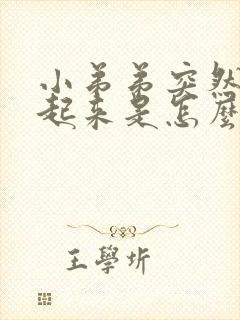 小弟弟突然
起来是怎麽
王學圻